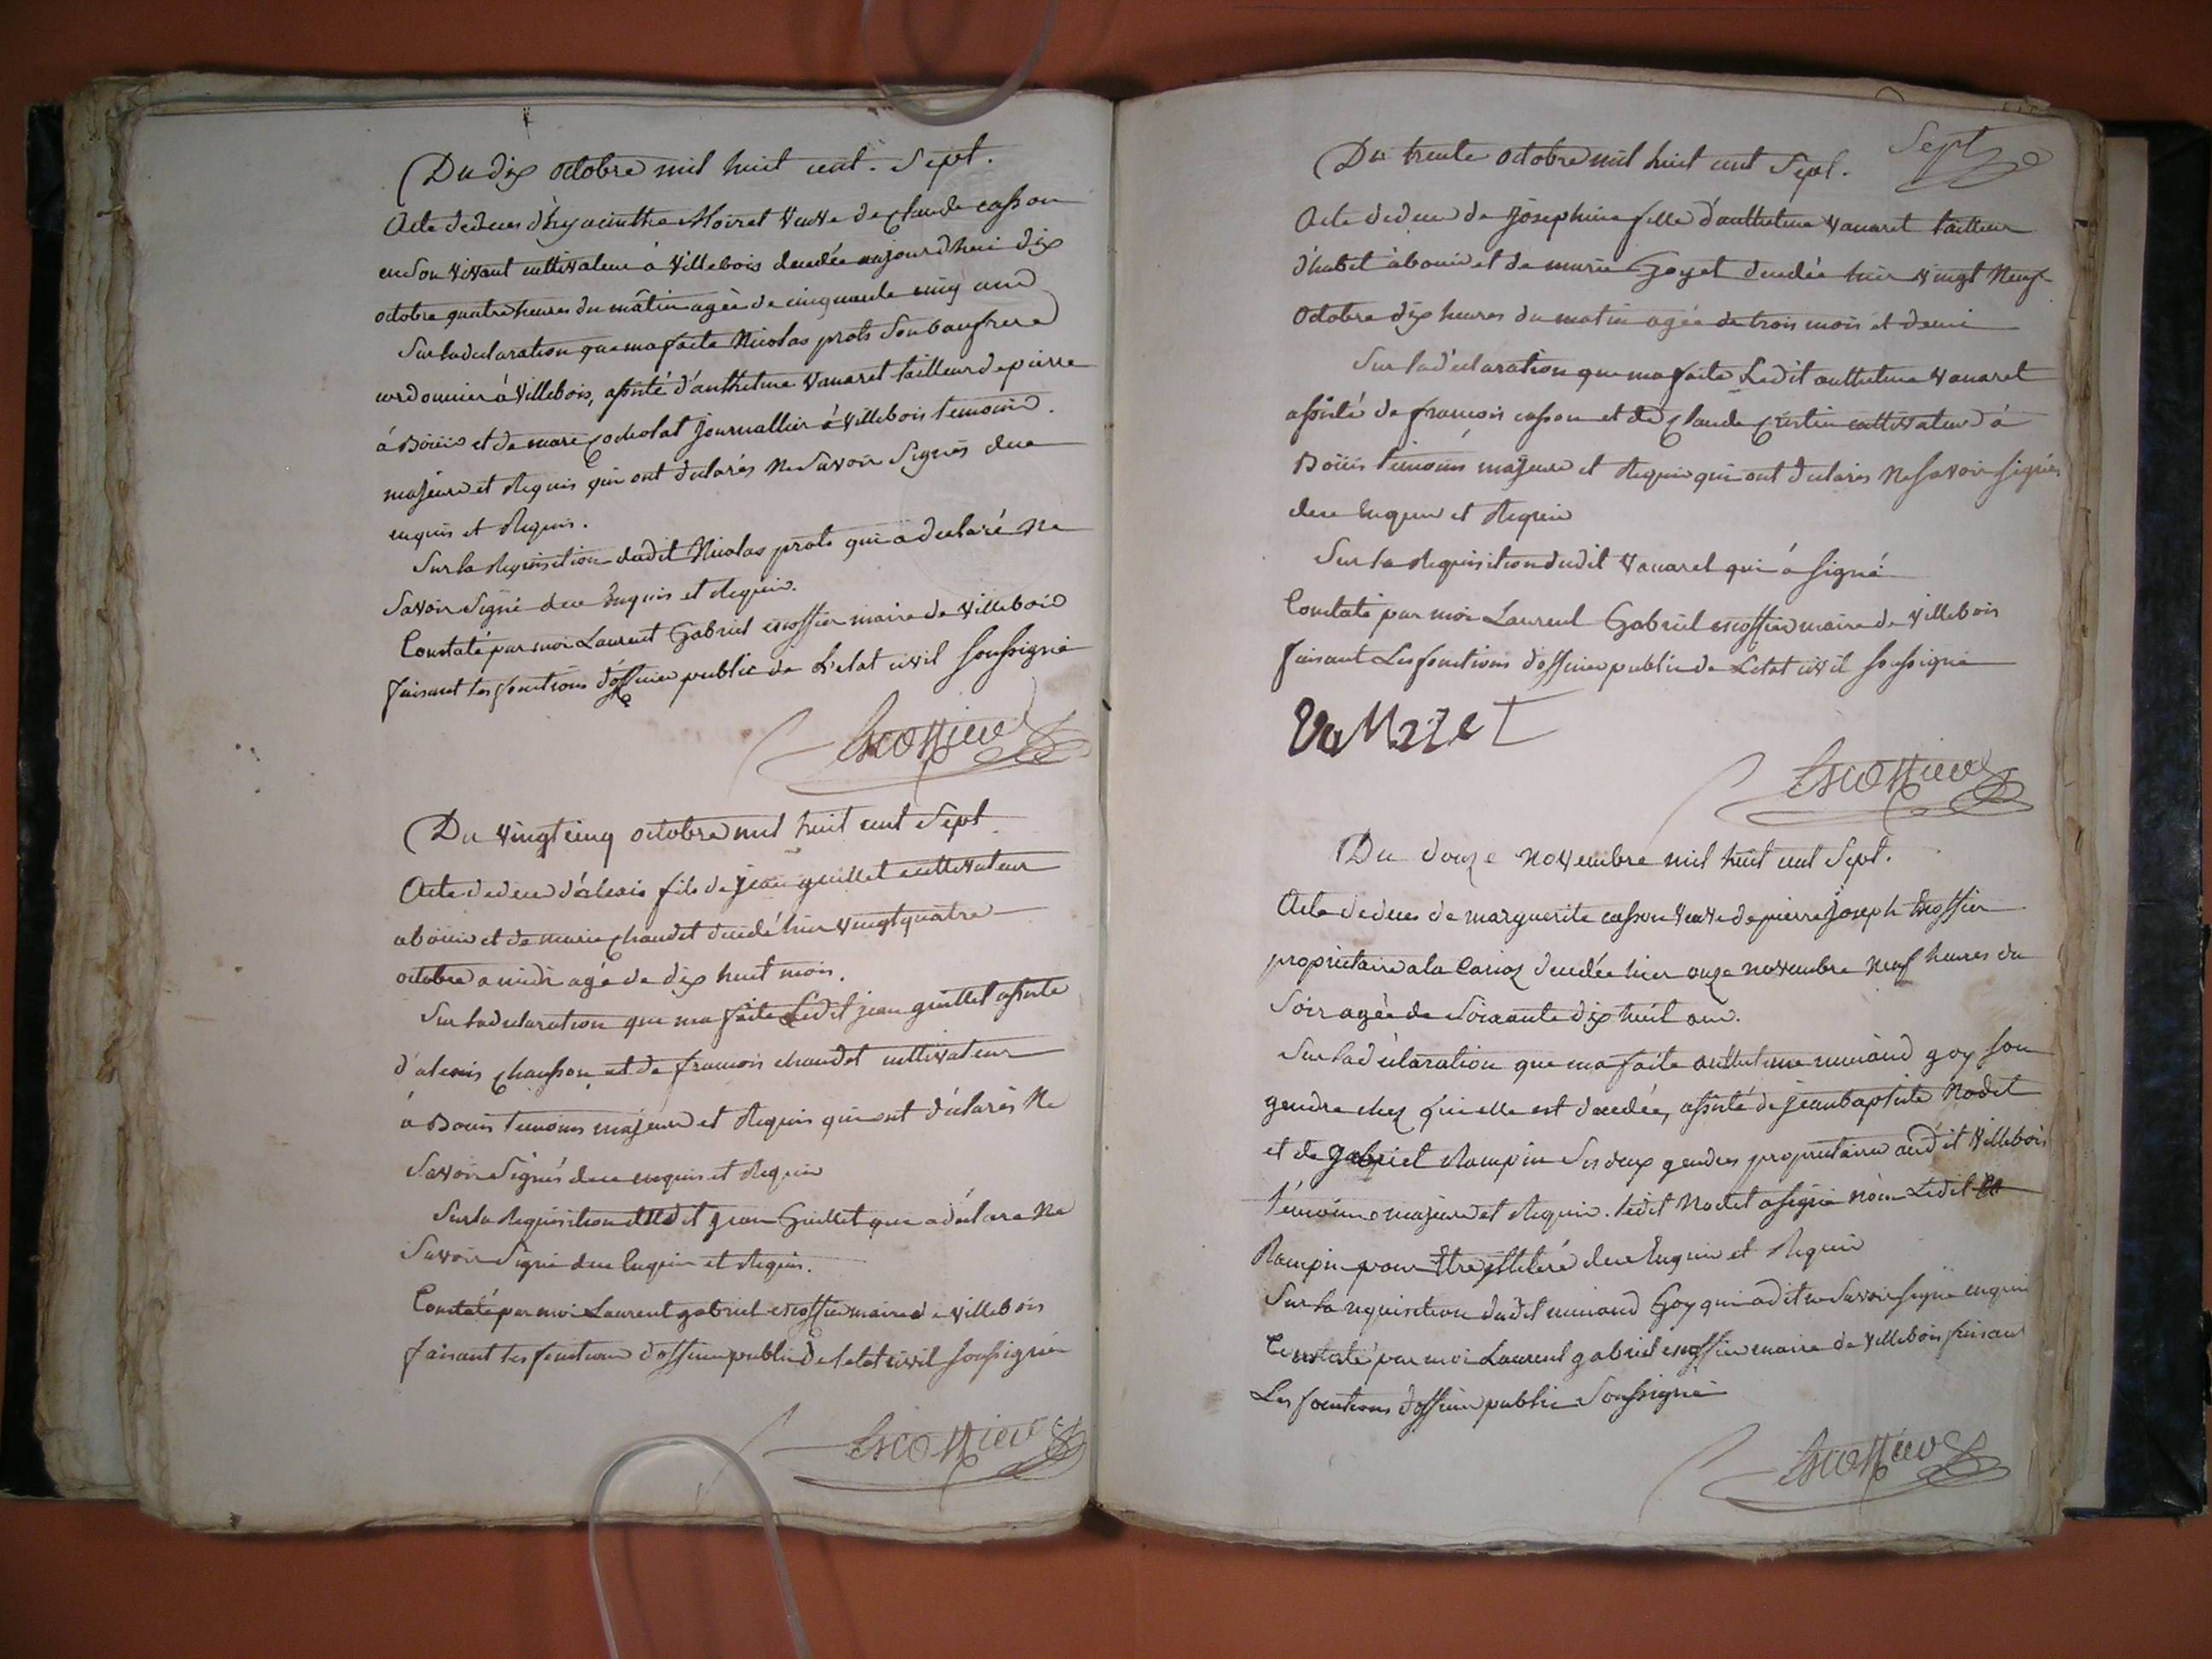 Du dix octobre mil huit cent. Sept.
Acte de deces d'hyacinthe Moiret veuve de Claude casson
en son vivant cultivateur à Villebois decedée aujourd'hui dix
octobre quatre heures du mâtin agée de cinquante cinq ans
Sur la declaration que ma faite Nicolas prots Son baufrere
cordonnier à Villebois, assisté d'anthelme Vanaret tailleur de pierre
à Boüis et de marc Cocholat journallier à Villebois temoins.
majeurs et Requis qui ont declarés Ne Savoir Signés de ce
enquis et Requis.
Sur la Requisition dudit Nicolas prots qui a declaré Ne
Savoir Signé de ce Enquis et Requis.
Constaté par moi Laurent Gabriel escoffier maire de Villebois
faisant les fonctions d'officier public de L'etat civil soussigné
Escoffier
Du Vingt cinq octobre mil huit cent Sept
Acte de deces d'alexis fils de jean guillet cultivateur
a boüis et de marie chaudet decedé hier Vingt quatre
octobre a midi agé de dix huit mois.
Sur la declaration que ma faite Ledit jean guillet assisté
d'alexis chausson et de francois chaudet cultivateurs
à Bouis temoins majeurs et Requis qui ont déclarés Ne
Savoir Signés de ce enquis et Requis
Sur la Requisition dudit jean Guillet qui a déclare Ne
Savoir Signé de ce Enquis et Requis.
Constaté par moi Laurent gabriel escoffier maire de Villebois
faisant les fonctions d'officier public de l'etat civil soussigné
Escoffier
Sept
Du trente octobre mil huit cent Sept.
Acte de deces de Joséphine fille d'anthelme Vanaret tailleur
d'habit à bouis et de marie Goyet decedée hier vingt Neuf
Octobre dix heures du matin agée de trois mois et demi
Sur la déclaration que ma faite Ledit anthelme Vanaret
assisté de francois casson et de Claude Cristin cultivateurs à
Boüis témoins majeurs et Requis qui ont declarés Ne savoir signés
de ce Enquis et Requis
Sur la Requisition dudit Vanaret qui à signé
Constaté par moi Laurent Gabriel escoffier maire de Villebois
faisant Les fonctions d'officier public de L'etat civil soussigné
VaNaret
Escoffier
Du douze Novembre mil huit cent Sept.
Acte de deces de marguerite casson veuve de pierre joseph Escoffier
propriétaire a la decedée hier onze novembre Neuf heures du
Soir agée de Soixante dix huit ans.
Sur la déclaration que ma faite anthelme goy son
gendre chez qui elle est decedée, assisté de jean baptiste Nodet
et de gabriel Rampin Ses deux gendres propriétaires audit Villebois
témoins majeurs et Requis. ledit Nodet a signé non Ledit
Rampin pour Etre illiteré de ce Enquis et Requis
Sur la requisition dudit Goy qui a dit ne Savoir signé enquis
Constaté par moi Laurent gabriel escoffier maire de Villebois faisant
Les fonctions d'officier public Soussigné
Escoffier